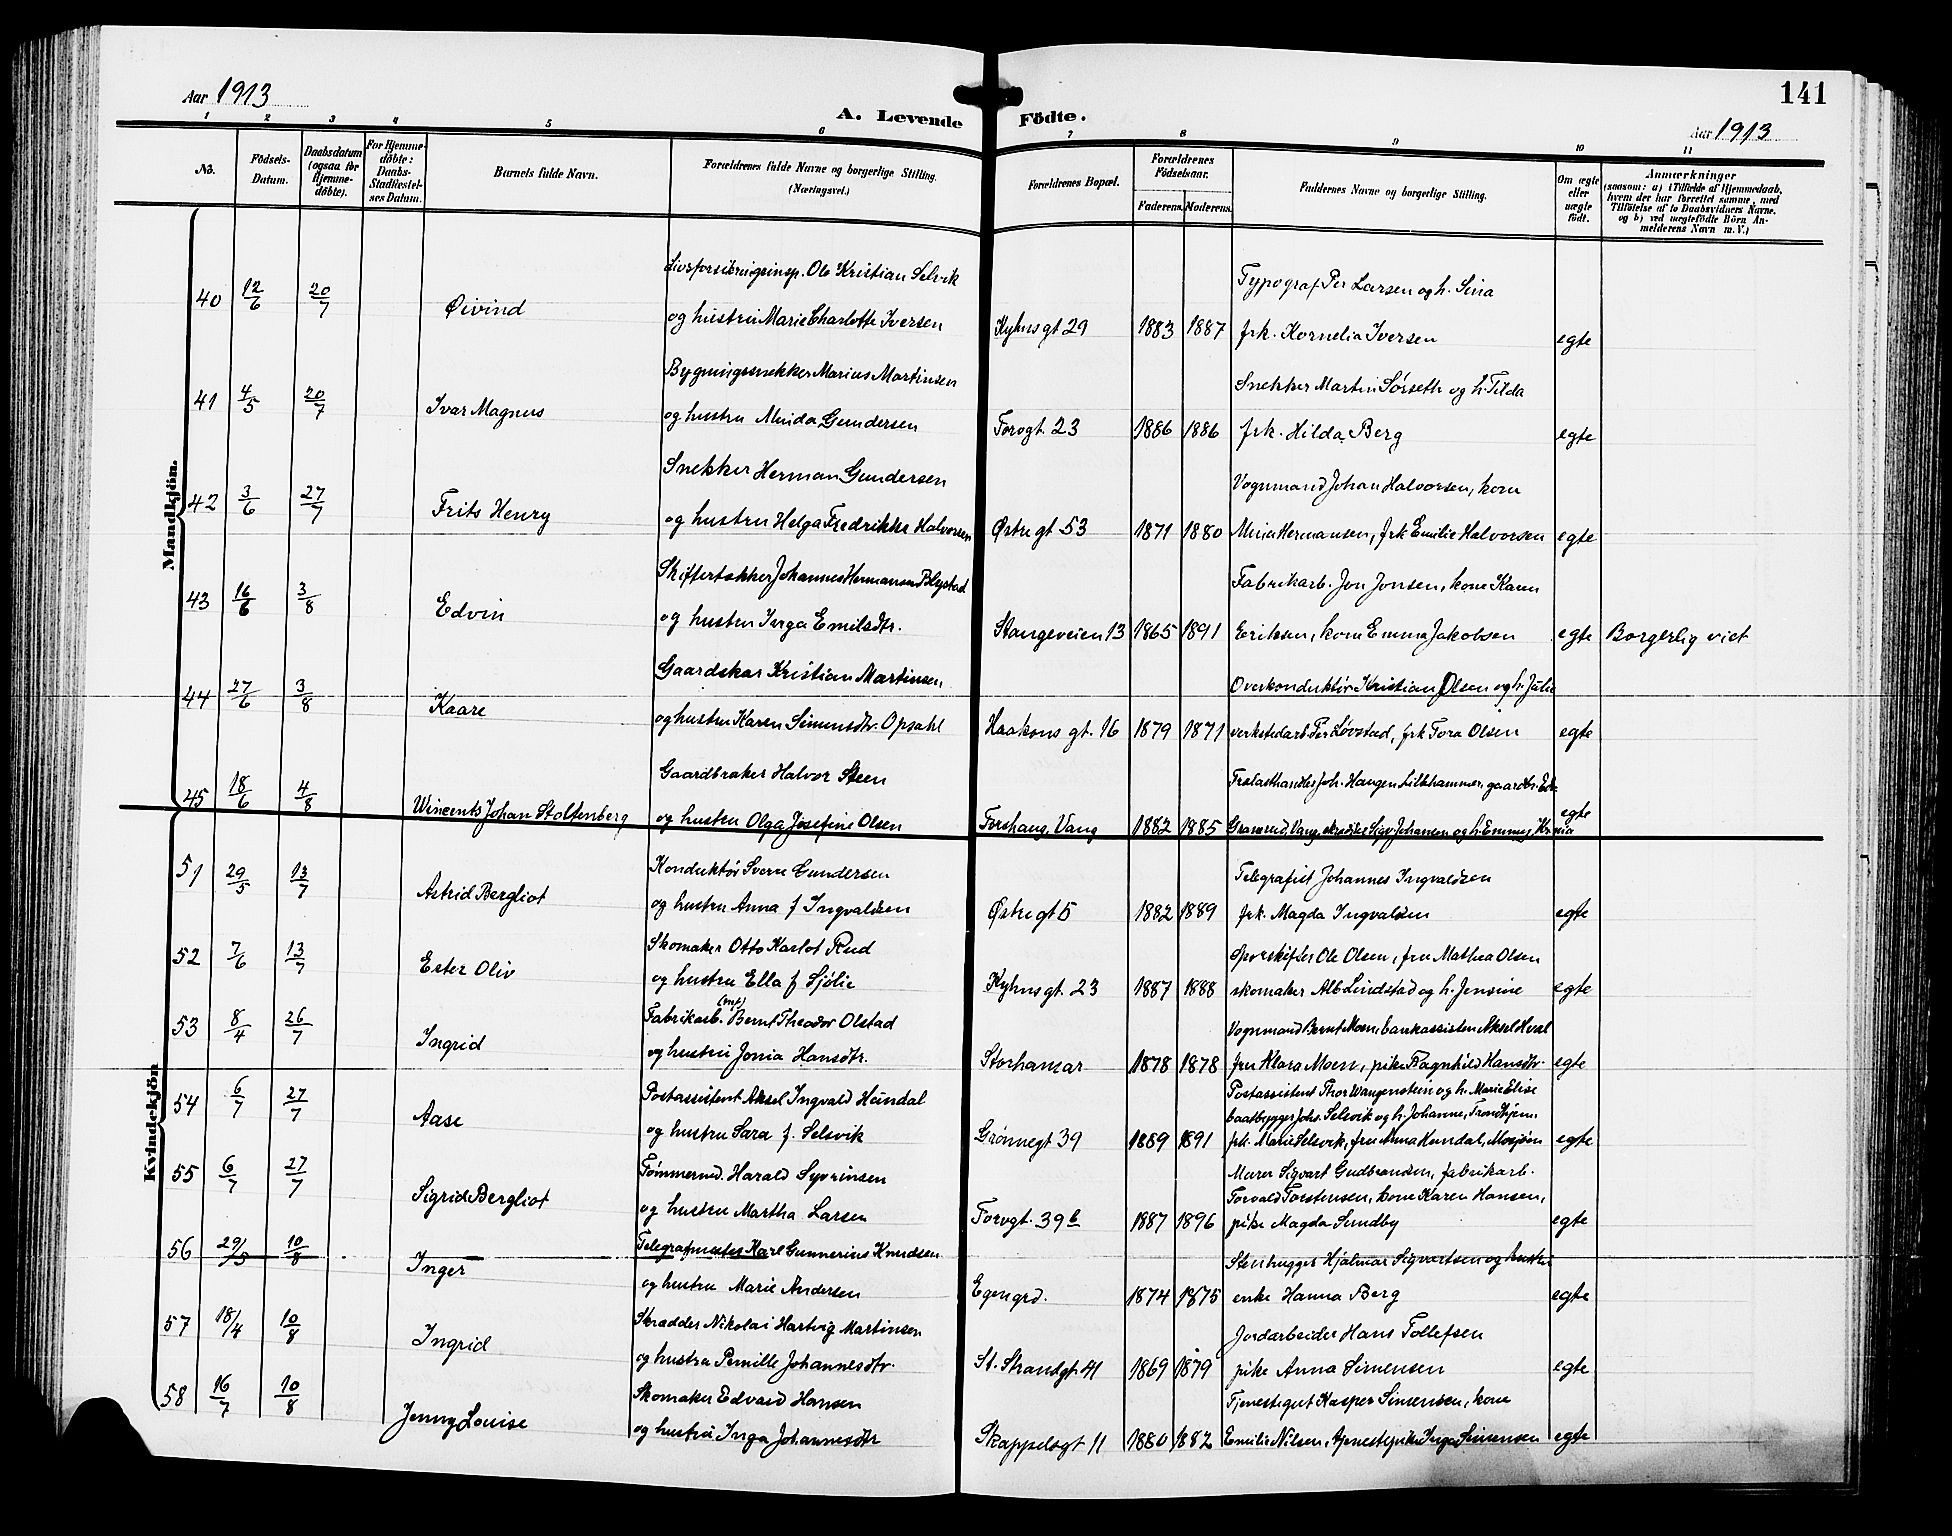 Aar 1913
A. Levende Födte.
141
Aar 1913
1 2 3 4 5 6 7 8 9 10 11
No.
Födsels-Datum.
Daabsdatum (ogsaa for Hjemme-döbte).
For Hjemme-döbte: Daabs-Stadfæstel-ses Datum.
Barnets fulde Navn.
Forældrenes fulde Navne og borgerlige Stilling. (Næringsvei.)
Forældrenes Bopæl.
Forældrenes Födselsaar.
Faderens. Moderens.
Faddernes Navne og borgerlige Stilling.
Om ægte eller uægte födt.
Anmærkninger
(saasom: a) i Tilfælde af Hjemmedaab,
hvem der har forrettet samme, med
Tilföielse af to Daabsvidners Navne.
og b) ved uægtefödte Börn An-
melderens Navn m. V.)
Mandkjön.
Livsforsikringsinsp. Ole Kristian Selvik Typograf Per Larsen og h. Sina
40 12/6 20/7 Øivind og hustru Marie Charlotte Iversen Kyhns gt 29 1883 1887 frk. Kornelia Iversen egte
Bygningssnekker Marius Martinsen Snekker Martin Sørseth og h. Tilda
41 4/5 20/7 Ivar Magnus og hustru Minda Gundersen Torvgt. 23 1886 1886 frk. Hilda Berg egte
Snekker Herman Gundersen Vognmand Johan Halvorsen, kone
42 3/6 27/7 Frits Henry og hustru Helga Fredrikke Halvorsen Østregt 53 1871 1880 Mina Hermansen, frk Emilie Halvorsen egte
Skiftertækker Johannes Hermansen Blystad Fabrikarb. Jon Jonsen, kone Karen
43 16/6 3/8 Edvin og hustru Inga Emilsdtr. Stangeveien 13 1865 1891 Eriksen, kone Emma Jakobsen egte Borgerlig viet
Gaardskar Kristian Martinsen Overkonduktør Kristian Olsen og h. Julie
44 27/6 3/8 Kaare og hustru Karen Simensdtr. Opsahl Haakons gt. 16 1879 1871 verkstedarb. Per Løvstad, frk Tora Olsen egte
Gaardbruker Halvor Steen Joh. Haugen Lillehammer, gaardbr.
45 18/6 4/8 Wincents Johan Stoltenberg og hustru Olga Josefine Olsen Furuhaug, Vang 1882 1885 Vang, Sigv. Johansen og h. Emma, Kr.nia egte
Kvindekjön
Konduktør Sverre Gundersen Telegrafist Johannes Ingvaldsen
51 29/5 13/7 Astrid Bergliot og hustru Anna f Ingvaldsen Østregt 5 1882 1889 frk. Magda Ingvaldsen egte
Skomaker Otto Karlot Rud Sporskifter Ole Olsen, fru Mathea Olsen
52 7/6 13/7 Ester Oliv og hustru Ella f Sjølie Kyhns gt. 23 1887 1888 skomaker Alb Lindstad og h. Jensine egte
Fabrikarb. Bernt Theodor Olstad Vognmand Bernt Moen, bankassistent Aksel Hval
53 8/4 26/7 Ingrid og hustru Jonia Hansdtr. Storhamar 1878 1878 fru Klara Moen, pike Ragnhild Hansdtr. egte
Postassistent Aksel Ingvald Heindal Postassistent Thor Wangenstein og h. Marie Elise
baatbygger Johs. Selsvik og h. Johanne, Trondhjem,
54 6/7 27/7 Aase og hustru Sara f. Selsvik Grønnegt 39 1889 1891 frk. Marie Selsvik, fru Anna Heindal, Mosjøen egte
Tømmermd. Harald Syvrinsen Murer Sigvart Gudbrandsen, fabrikarb.
Torvald Torstensen, kone Karen Hansen,
55 6/7 27/7 Sigrid Bergliot og hustru Martha Larsen Torvgt. 39 b 1887 1896 pike Magda Sundby egte
Telegrafmester Karl Gunnerius Knudsen Stenhugger Hjalmar Sigvartsen og hustru
56 29/3 10/8 Inger og hustru Marie Andersen Egengrd. 1874 1875 enke Hanna Berg egte
Skrædder Nikolai Hartvig Martinsen Jordarbeider Hans Tollefsen
57 18/4 10/8 Ingrid og hustru Pernille Johannesdtr. St. Strandgt. 41 1869 1879 pike Anna Simensen egte
Skomaker Edvard Hansen Tjenestegut Kasper Simensen, kone
58 16/7 10/8 Jenny Louise og hustru Inga Johannesdtr Skappelsgt 11 1880 1882 Emilie Nilsen, tjenestepike Inga Simensen egte